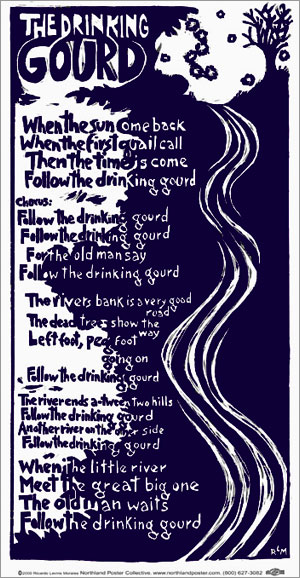 THE DRINKING
GOURD
When the sun come back
When the first quail call
Then the time is come
Follow the drinking gourd
Chorus:
Follow the drinking gourd
Follow the drinking gourd
For the old man say
Follow the drinking gourd
The rivers bank is a very good
road
The dead trees show the
way
Left foot, peg foot
going on
Follow the drinking gourd
The river ends a-tween two hills
Follow the drinking gourd
Another river on the other side
Follow the drinking gourd
When the little river
Meet the great big one
The old man waits
Follow the drinking gourd
RLM
©2000 Ricardo Levins Morales Northland Poster Collective. www.northlandposter.com. (800) 627-3082